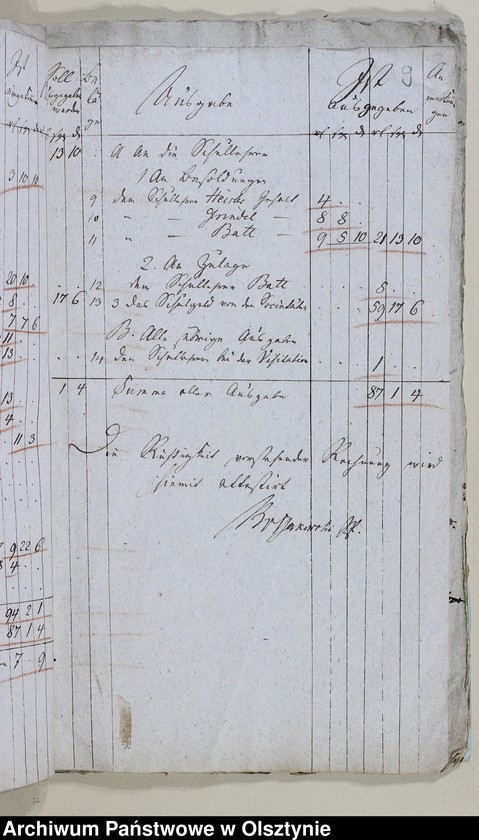 9
Soll ausgegeben werden
Beläge
Ausgabe
Ist ausgegeben
Anmerkungen
rt sgr d rt sgr d
13 10 A An die Schullehrer
1 An Besoldungen
9 dem Schullehrer Gehalt 4 . .
10 " — Grindel — 8 8 .
11 " — Batt — 9 5 10 21 13 10
2. An Zulage
12 dem Schullehrer Batt 5 . .
17 6 13 3 das Schulgeld von den Societäten 59 17 6
B. Alle übrige Ausgaben
14 den Schullehrern bei der Visitation 1
1 4 Summa aller Ausgabe 87 1 4
Die Richtigkeit vorstehender Rechnung wird
hiemit attestirt
Ist
3 10 10
20 10
8
7 7 6
11
13
13
4
11 3
9 22 6
4
94 2 1
87 1 4
7 . 9
Archiwum Państwowe w Olsztynie